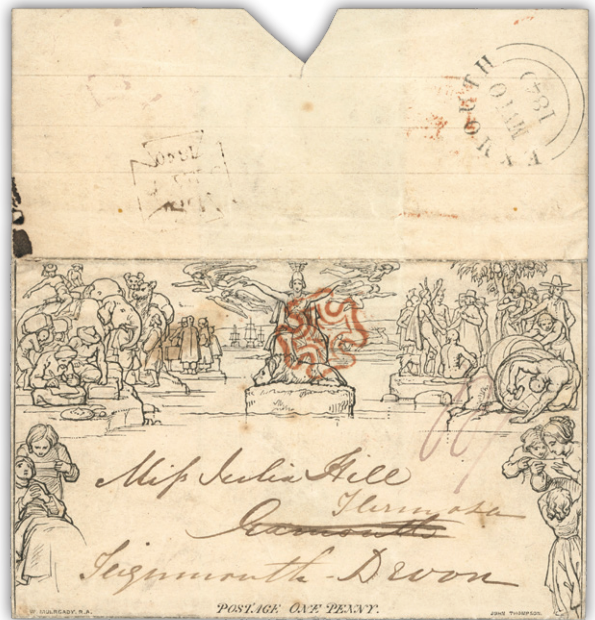 EXMOUTH
MY10
1840
Miss Julia Hill
Hermosa
Teignmouth - Devon
W. MULREADY, R.A.
POSTAGE ONE PENNY.
JOHN THOMPSON.